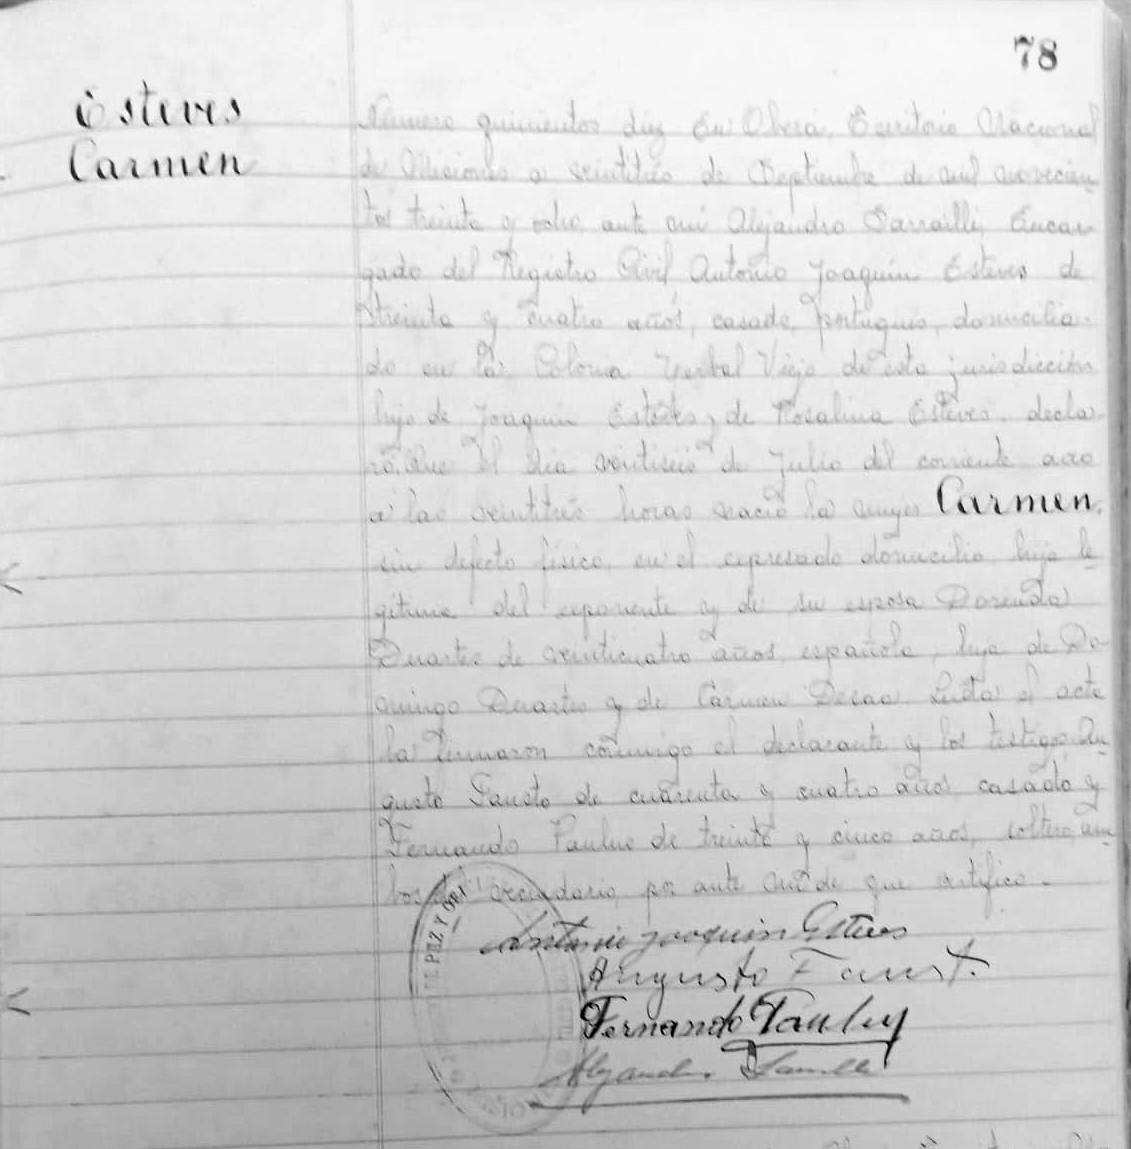 78
Esteves
Carmen
Número quinientos diez En Oberá, Territorio Nacional
de Misiones a veintitrés de Septiembre de mil novecien-
tos treinta y ocho, ante mi Alejandro Sarrailli, Encar-
gado del Registro Civil Antonio Joaquin Esteves de
treinta y cuatro años, casado, portugués, domicilia-
do en la Colonia Yerbal Viejo de esta jurisdicción
hijo de Joaquin Esteves y de Rosalina Esteves, decla-
ró: Que el día veintiseis de Julio del corriente año
a las veintitrés horas nació la mujer Carmen,
sin defecto físico, en el expresado domicilio, hija le-
gitima del exponente y de su esposa
Duartes de veinticuatro años, española, hija de Do-
mingo Duartes y de Carmen Leida el acta
la firmaron conmigo el declarante y los testigos Au-
gusto Fausto de cuarenta y cuatro años, casado y
Fernando Paulus de treinta y cinco años, soltero, am-
bos del vecindario, por ante mí de que certifico.-
Antonio Joaquin Esteves
Augusto Faust.
Fernando Pauluy
Alejandro Sarrailli
PAZ Y